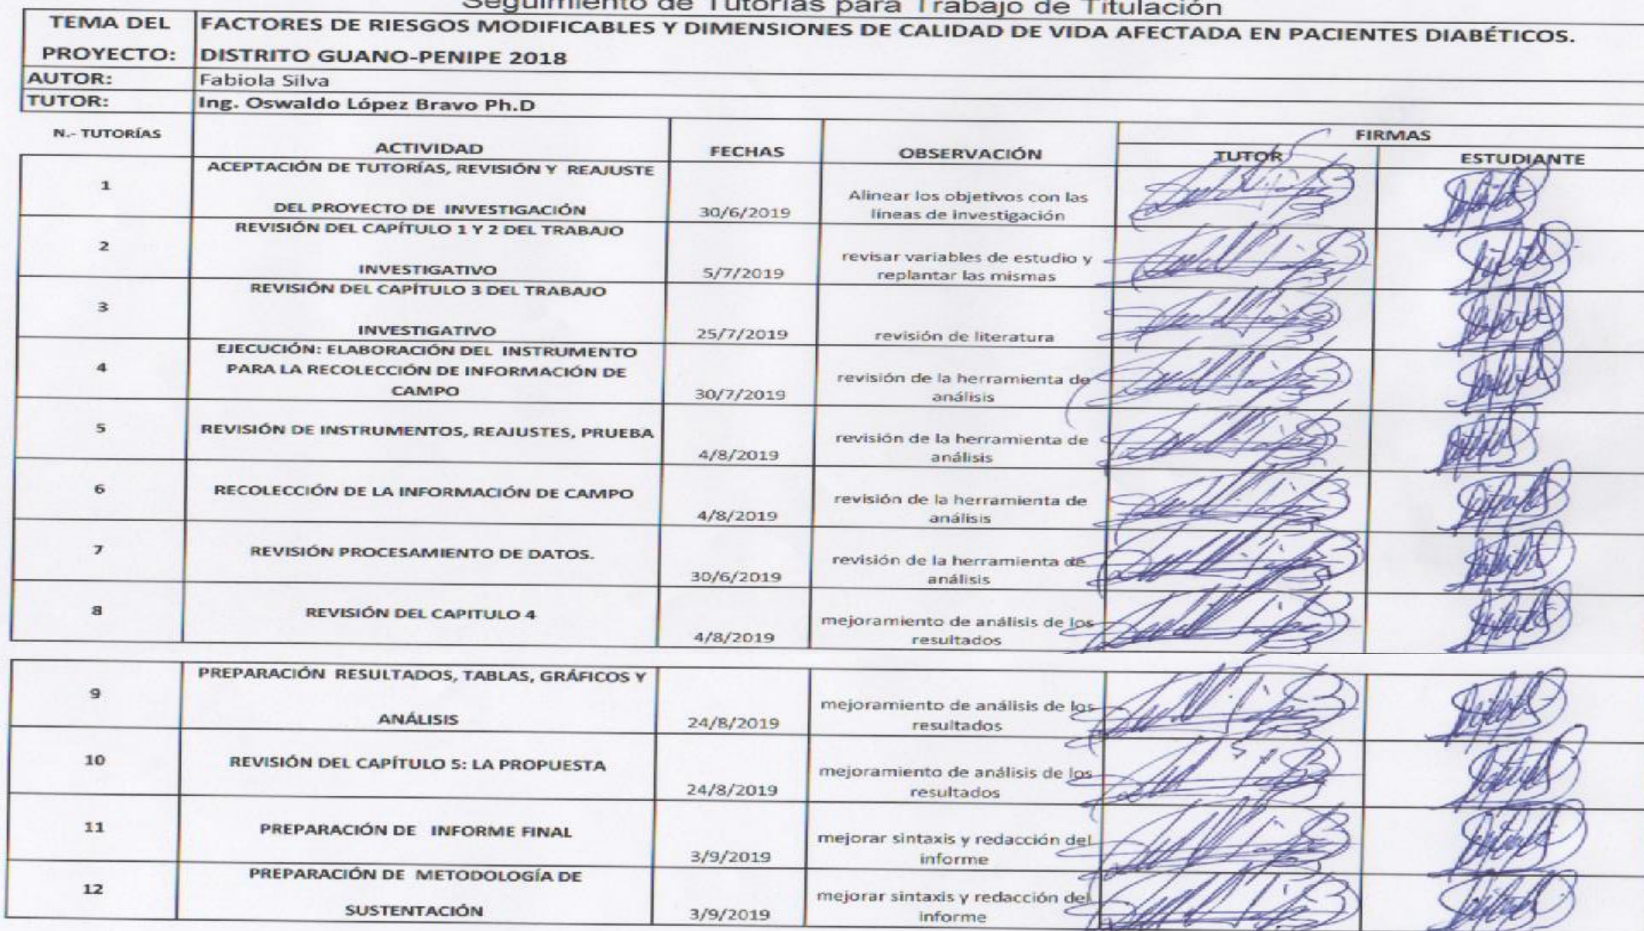 Seguimiento de Tutorías para Trabajo de Titulación
TEMA DEL PROYECTO: FACTORES DE RIESGOS MODIFICABLES Y DIMENSIONES DE CALIDAD DE VIDA AFECTADA EN PACIENTES DIABÉTICOS.
DISTRITO GUANO-PENIPE 2018
AUTOR: Fabiola Silva
TUTOR: Ing. Oswaldo López Bravo Ph.D
N.- TUTORÍAS ACTIVIDAD FECHAS OBSERVACIÓN FIRMAS
TUTOR ESTUDIANTE
1 ACEPTACIÓN DE TUTORÍAS, REVISIÓN Y REAJUSTE
DEL PROYECTO DE INVESTIGACIÓN 30/6/2019 Alinear los objetivos con las
líneas de investigación
2 REVISIÓN DEL CAPÍTULO 1 Y 2 DEL TRABAJO
INVESTIGATIVO 5/7/2019 revisar variables de estudio y
replantar las mismas
3 REVISIÓN DEL CAPÍTULO 3 DEL TRABAJO
INVESTIGATIVO 25/7/2019 revisión de literatura
4 EJECUCIÓN: ELABORACIÓN DEL INSTRUMENTO
PARA LA RECOLECCIÓN DE INFORMACIÓN DE
CAMPO 30/7/2019 revisión de la herramienta de
análisis
5 REVISIÓN DE INSTRUMENTOS, REAJUSTES, PRUEBA 4/8/2019 revisión de la herramienta de
análisis
6 RECOLECCIÓN DE LA INFORMACIÓN DE CAMPO 4/8/2019 revisión de la herramienta de
análisis
7 REVISIÓN PROCESAMIENTO DE DATOS. 30/6/2019 revisión de la herramienta de
análisis
8 REVISIÓN DEL CAPITULO 4 4/8/2019 mejoramiento de análisis de los
resultados
9 PREPARACIÓN RESULTADOS, TABLAS, GRÁFICOS Y
ANÁLISIS 24/8/2019 mejoramiento de análisis de los
resultados
10 REVISIÓN DEL CAPÍTULO 5: LA PROPUESTA 24/8/2019 mejoramiento de análisis de los
resultados
11 PREPARACIÓN DE INFORME FINAL 3/9/2019 mejorar sintaxis y redacción del
informe
12 PREPARACIÓN DE METODOLOGÍA DE
SUSTENTACIÓN 3/9/2019 mejorar sintaxis y redacción del
informe